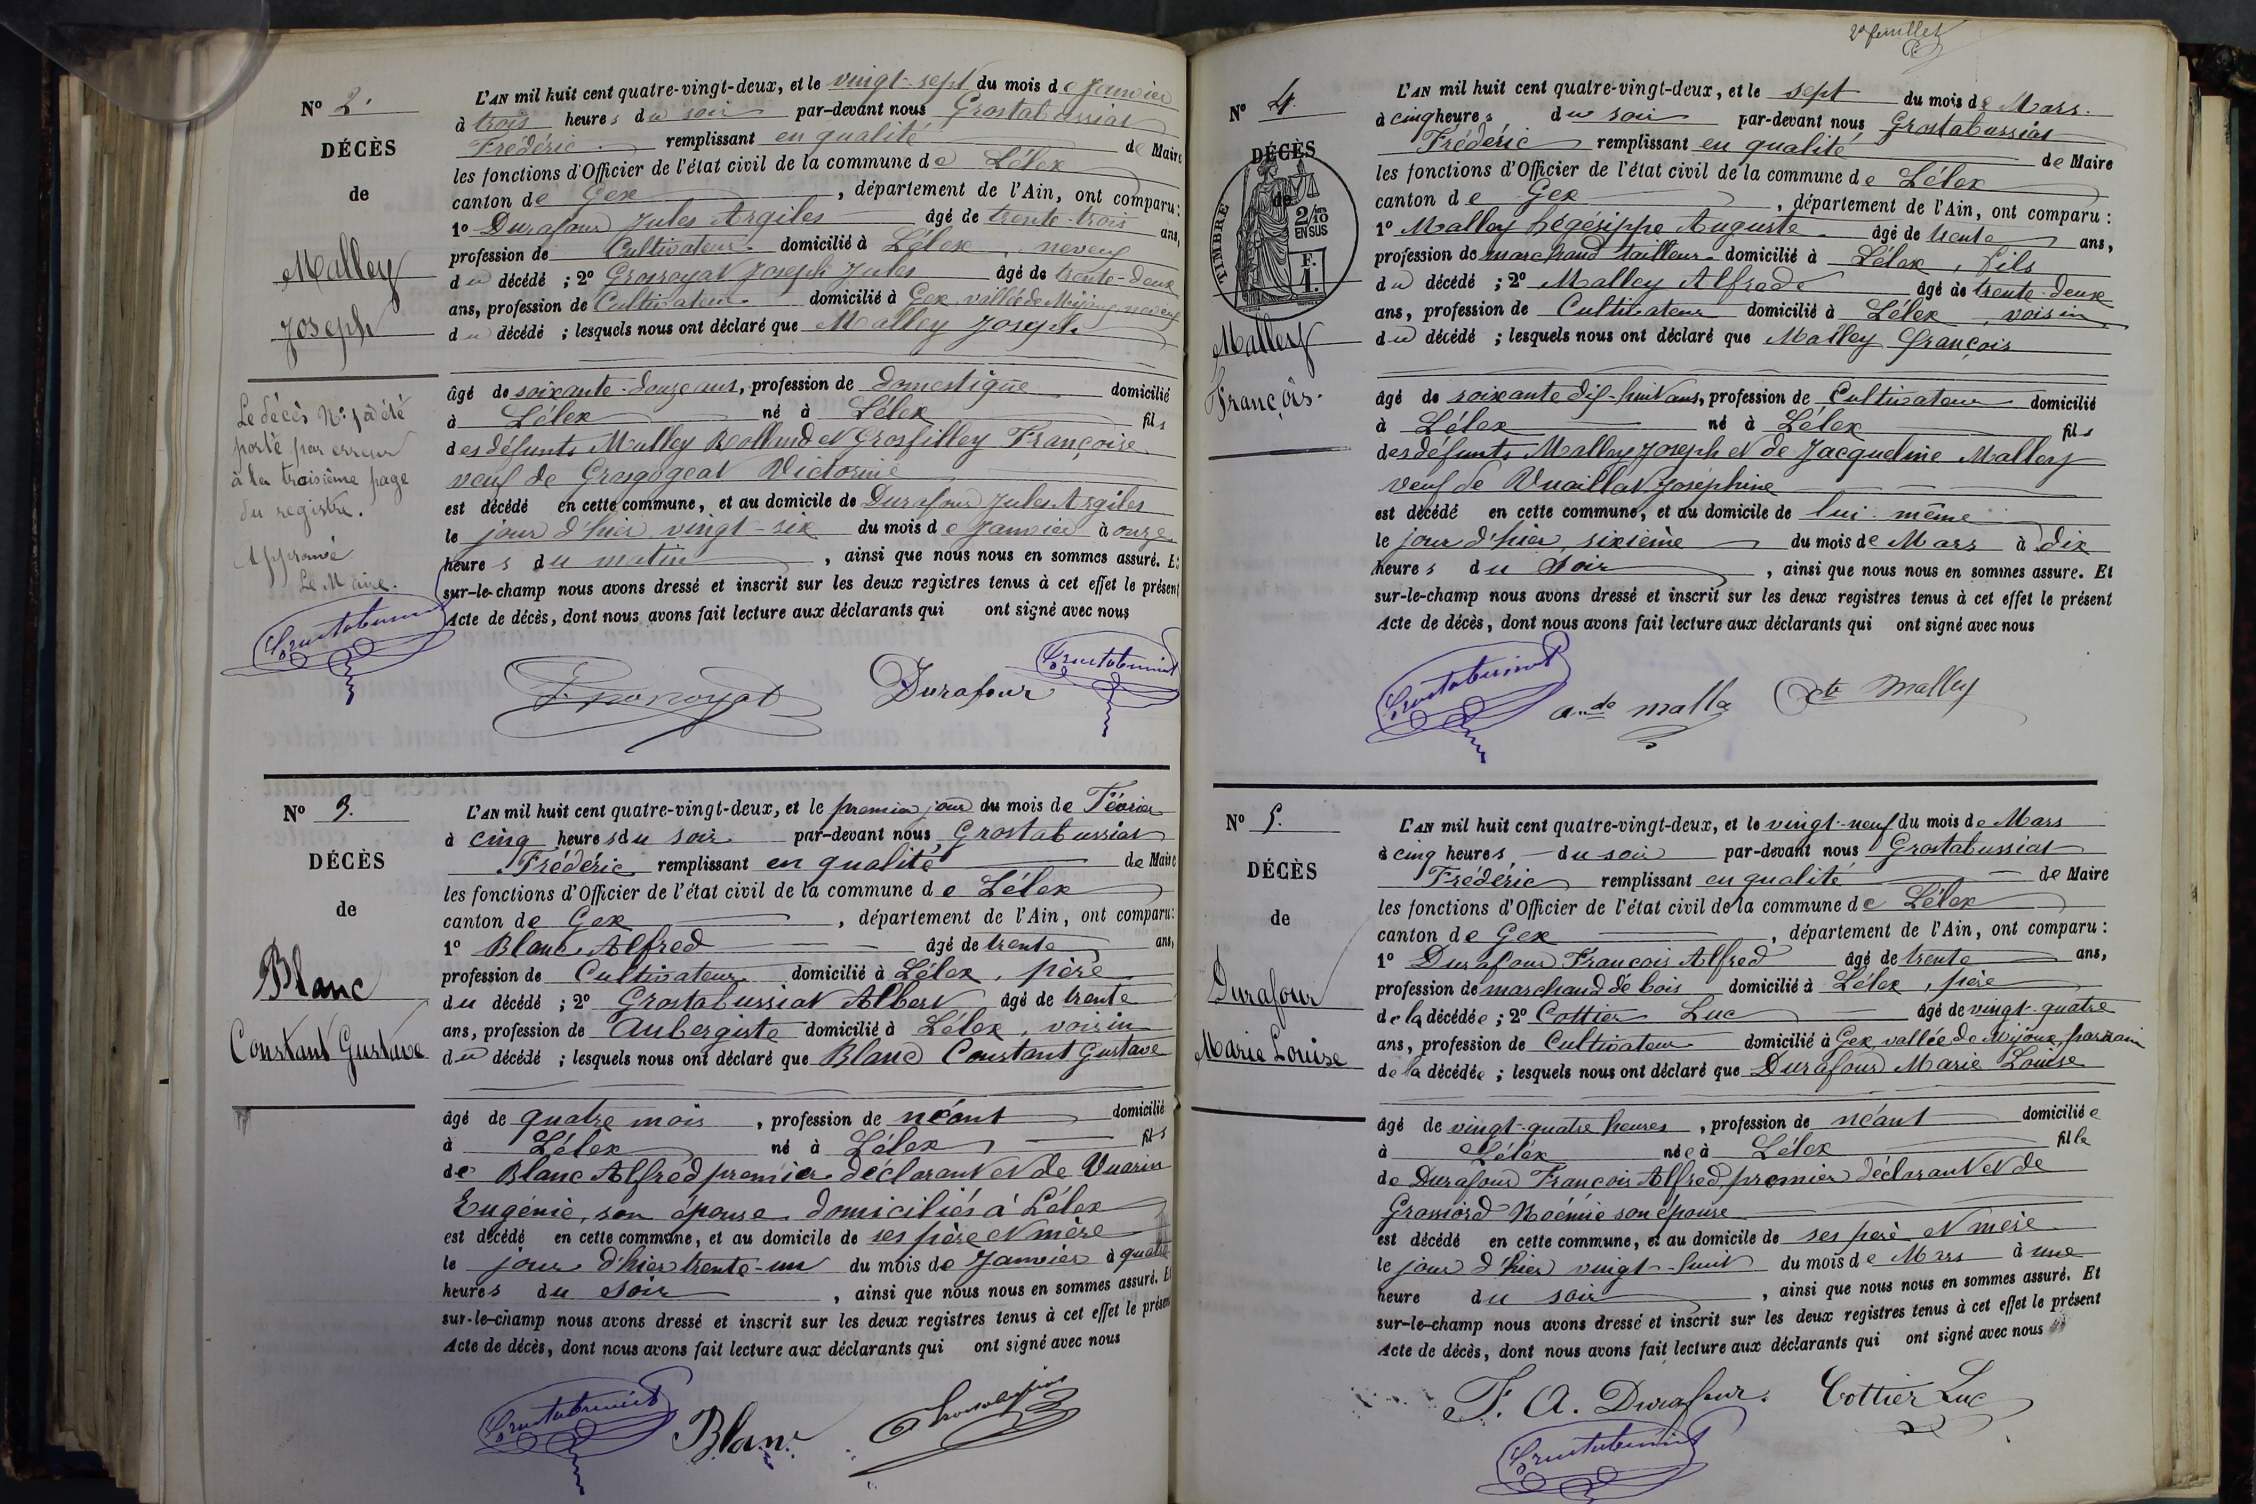 N° 2.
DÉCÈS
de
Malley
Joseph
Le décès N° 1 a été
porté par erreur
à la troisième page
du registre.
Approuvé
Le Maire.
L'AN mil huit cent quatre-vingt-deux, et le vingt-sept du mois de Janvier
à trois heures du soir par-devant nous Grostabussiat
Frédéric remplissant en qualité de Maire
les fonctions d'Officier de l'état civil de la commune de Lélex
canton de Gex, département de l'Ain, ont comparu:
1° Durafour Jules Argiles âgé de trente-trois ans,
profession de Cultivateur domicilié à Lélex, neveu
du décédé ; 2° Grosroyat Joseph Jules âgé de trente-deux
ans, profession de Cultivateur domicilié à Gex, vallée de Mijoux, neveu
du décédé ; lesquels nous ont déclaré que Malley Joseph
âgé de soixante-douze ans, profession de domestique domicilié
à Lélex né à Lélex fils
des défunts Malley Rolland et Grosfilley Françoise
veuf de Grosgogeat Victorine
est décédé en cette commune, et au domicile de Durafour Jules Argiles
le jour d'hier vingt-six du mois de Janvier à onze
heures du matin, ainsi que nous nous en sommes assuré. Et
sur-le-champ nous avons dressé et inscrit sur les deux registres tenus à cet effet le présent
Acte de décès, dont nous avons fait lecture aux déclarants qui ont signé avec nous
Grostabussiat
Grosroyat Durafour Grostabussiat
N° 3.
DÉCÈS
de
Blanc
Constant Gustave
L'AN mil huit cent quatre-vingt-deux, et le premier jour du mois de Février
à cinq heures du soir par-devant nous Grostabussiat
Frédéric remplissant en qualité de Maire
les fonctions d'Officier de l'état civil de la commune de Lélex
canton de Gex, département de l'Ain, ont comparu:
1° Blanc Alfred âgé de trente ans,
profession de Cultivateur domicilié à Lélex, père
du décédé ; 2° Grostabussiat Albert âgé de trente
ans, profession de Aubergiste domicilié à Lélex, voisin
du décédé ; lesquels nous ont déclaré que Blanc Constant Gustave
âgé de quatre mois, profession de néant domicilié
à Lélex né à Lélex fils
de Blanc Alfred premier déclarant et de Vuarin
Eugénie, son épouse domiciliés à Lélex
est décédé en cette commune, et au domicile de ses père et mère
le jour d'hier trente-un du mois de Janvier à quatre
heures du soir, ainsi que nous nous en sommes assuré. Et
sur-le-champ nous avons dressé et inscrit sur les deux registres tenus à cet effet le présent
Acte de décès, dont nous avons fait lecture aux déclarants qui ont signé avec nous
Grostabussiat Blanc Grostabussiat
2e feuillet
N° 4.
DÉCÈS
de
TIMBRE
2/10 EN SUS
F. 1.
Malley
François.
L'AN mil huit cent quatre-vingt-deux, et le sept du mois de Mars.
à cinq heures du soir par-devant nous Grostabussiat
Frédéric remplissant en qualité de Maire
les fonctions d'Officier de l'état civil de la commune de Lélex
canton de Gex, département de l'Ain, ont comparu :
1° Malley hégésippe Auguste âgé de trente ans,
profession de marchand tailleur domicilié à Lélex, fils
du décédé ; 2° Malley Alfred âgé de trente-deux
ans, profession de Cultivateur domicilié à Lélex, voisin
du décédé ; lesquels nous ont déclaré que Malley François
âgé de soixante dix-huit ans, profession de Cultivateur domicilié
à Lélex né à Lélex fils
des défunts Malley Joseph et de Jacqueline Malley
veuf de Vuaillat Joséphine
est décédé en cette commune, et au domicile de lui-même
le jour d'hier sixième du mois de Mars à dix
heures du soir, ainsi que nous nous en sommes assuré. Et
sur-le-champ nous avons dressé et inscrit sur les deux registres tenus à cet effet le présent
Acte de décès, dont nous avons fait lecture aux déclarants qui ont signé avec nous
Grostabussiat malla te Malley
N° 5.
DÉCÈS
de
Durafour
Marie Louise
L'AN mil huit cent quatre-vingt-deux, et le vingt-neuf du mois de Mars
à cinq heures du soir par-devant nous Grostabussiat
Frédéric remplissant en qualité de Maire
les fonctions d'Officier de l'état civil de la commune de Lélex
canton de Gex, département de l'Ain, ont comparu :
1° Durafour François Alfred âgé de trente ans,
profession de marchand de bois domicilié à Lélex, père
de la décédée ; 2° Cottier Luc âgé de vingt-quatre
ans, profession de Cultivateur domicilié à Gex, vallée de Mijoux, parrain
de la décédée ; lesquels nous ont déclaré que Durafour Marie Louise
âgé de vingt-quatre heures, profession de néant domiciliée
à Lélex née à Lélex fille
de Durafour François Alfred, premier déclarant et de
Grossiord Noémie son épouse
est décédé en cette commune, et au domicile de ses père et mère
le jour d'hier vingt-huit du mois de Mars à une
heure du soir, ainsi que nous nous en sommes assuré. Et
sur-le-champ nous avons dressé et inscrit sur les deux registres tenus à cet effet le présent
Acte de décès, dont nous avons fait lecture aux déclarants qui ont signé avec nous
F. A. Durafour. Cottier Luc
Grostabussiat